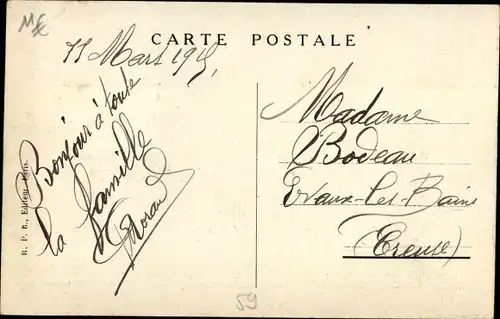 CARTE POSTALE
11 Mars 191
Bonjour à toute
la famille
R. P. B., Editeur, Paris.
Madame
Bodeau
Evaux-les-Bains
(Creuse)
59